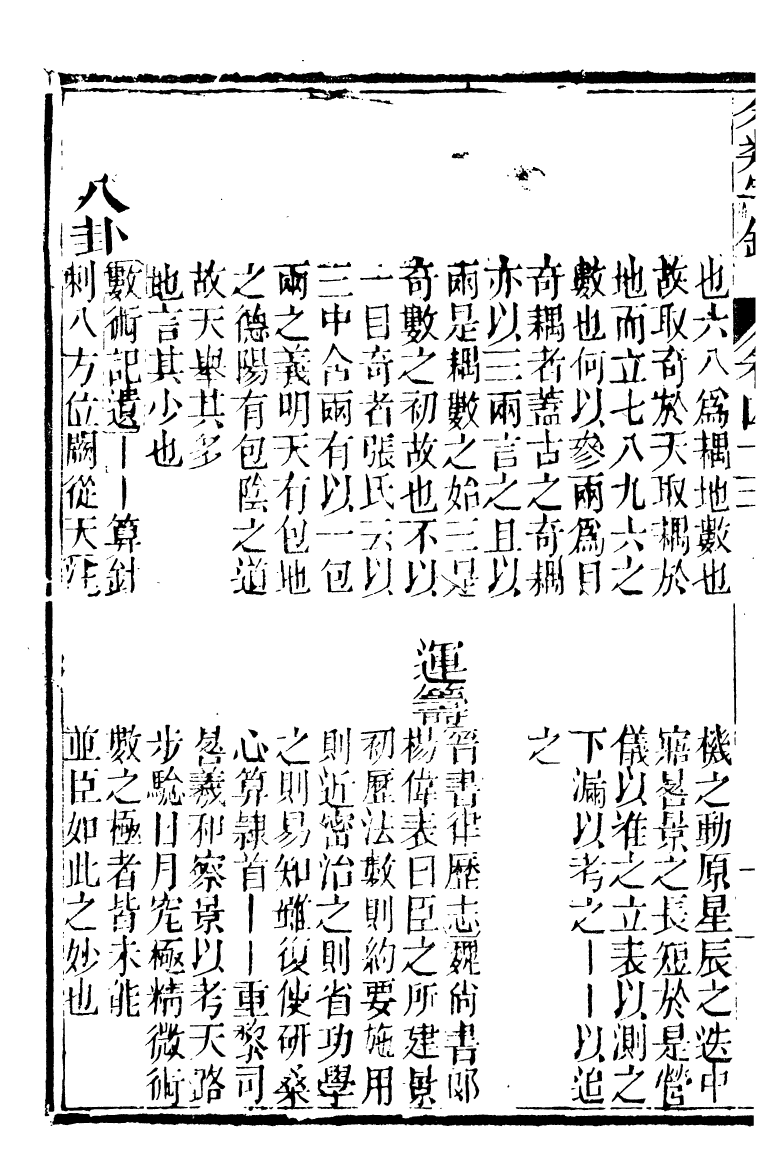 卷四十三
也六八爲耦地數也
故取奇於天取耦於
地而立七八九六之
數也何以參兩爲目
奇耦者蓋古之奇耦
亦以三兩言之且以
兩是耦數之始三是
奇數之初故也不以
一目奇者張氏云以
三中含兩有以一包
兩之義明天有包地
之德陽有包陰之道
故天舉其多
地言其少也
八卦
數術記遺丨丨算針
刺八方位闕從天
機之動原星辰之迭中
寤晷景之長短於是營
儀以准之立表以測之
下漏以考之丨丨以追
之
運籌
晉書律歷志魏尚書郎
楊偉表曰臣之所建景
初歷法數則約要施用
則近密治之則省功學
之則易知雖復使研桑
心算隸首丨丨重黎司
晷羲和察景以考天路
步驗日月究極精微術
數之極者皆未能
並臣如此之妙也